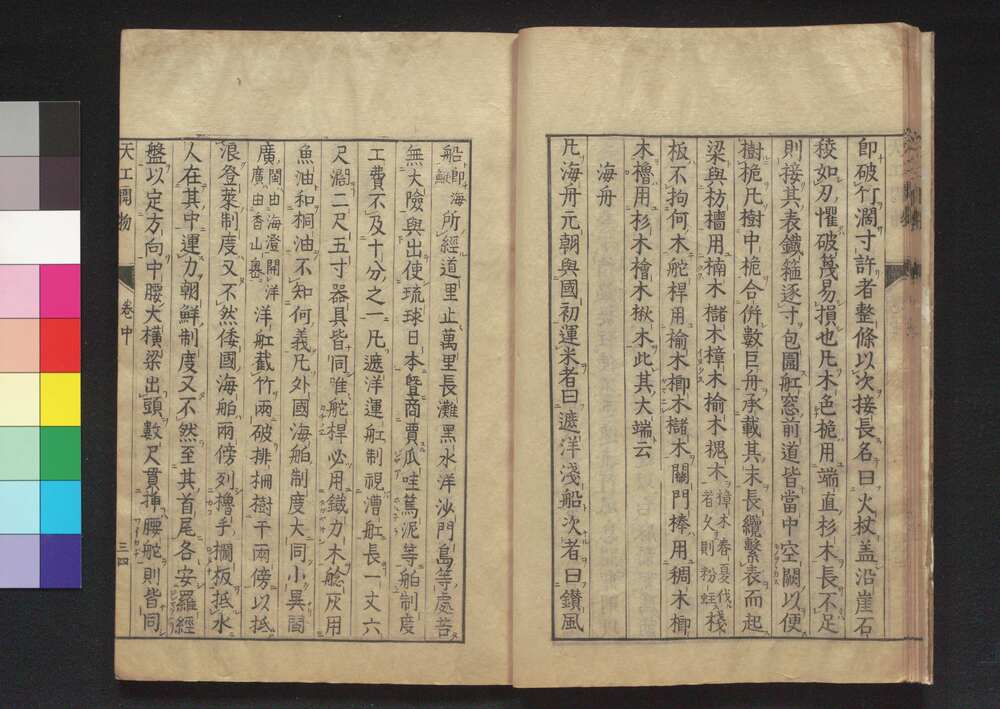 即破竹濶寸許者整條以次接長名曰火杖盖沿崖石
稜如刃懼破篾易損也凡木色桅用端直杉木長不足
則接其表鐵箍逐寸包圍舡窓前道皆當中空闕以便
樹桅凡樹中桅合併數巨舟承載其末長纜繫表而起
梁與枋檣用楠木櫧木樟木榆木槐木樟木春夏伐者久則粉蛀棧
板不拘何木舵桿用榆木榔木櫧木關門棒用稠木榔
木櫓用杉木檜木楸木此其大端云
海舟
凡海舟元朝與國初運米者曰遮洋淺船次者曰鑽風
船即海鰍所經道里止萬里長灘黑水洋沙門島等處苦
無大險與出使琉球日本暨商賈瓜哇篤泥等舶制度
工費不及十分之一凡遮洋運舡制視漕舡長一丈六
尺濶二尺五寸器具皆同唯舵桿必用鐵力木艌灰用
魚油和桐油不知何義凡外國海舶制度大同小異閩
廣閩由海澄開洋廣由香山嶴洋舡截竹兩破排柵樹干兩傍以抵
浪登萊制度又不然倭國海舶兩傍列櫓手欄板抵水
人在其中運力朝鮮制度又不然至其首尾各安羅經
盤以定方向中腰大橫梁出頭數尺貫挿腰舵則皆同
天工開物
卷中
三四